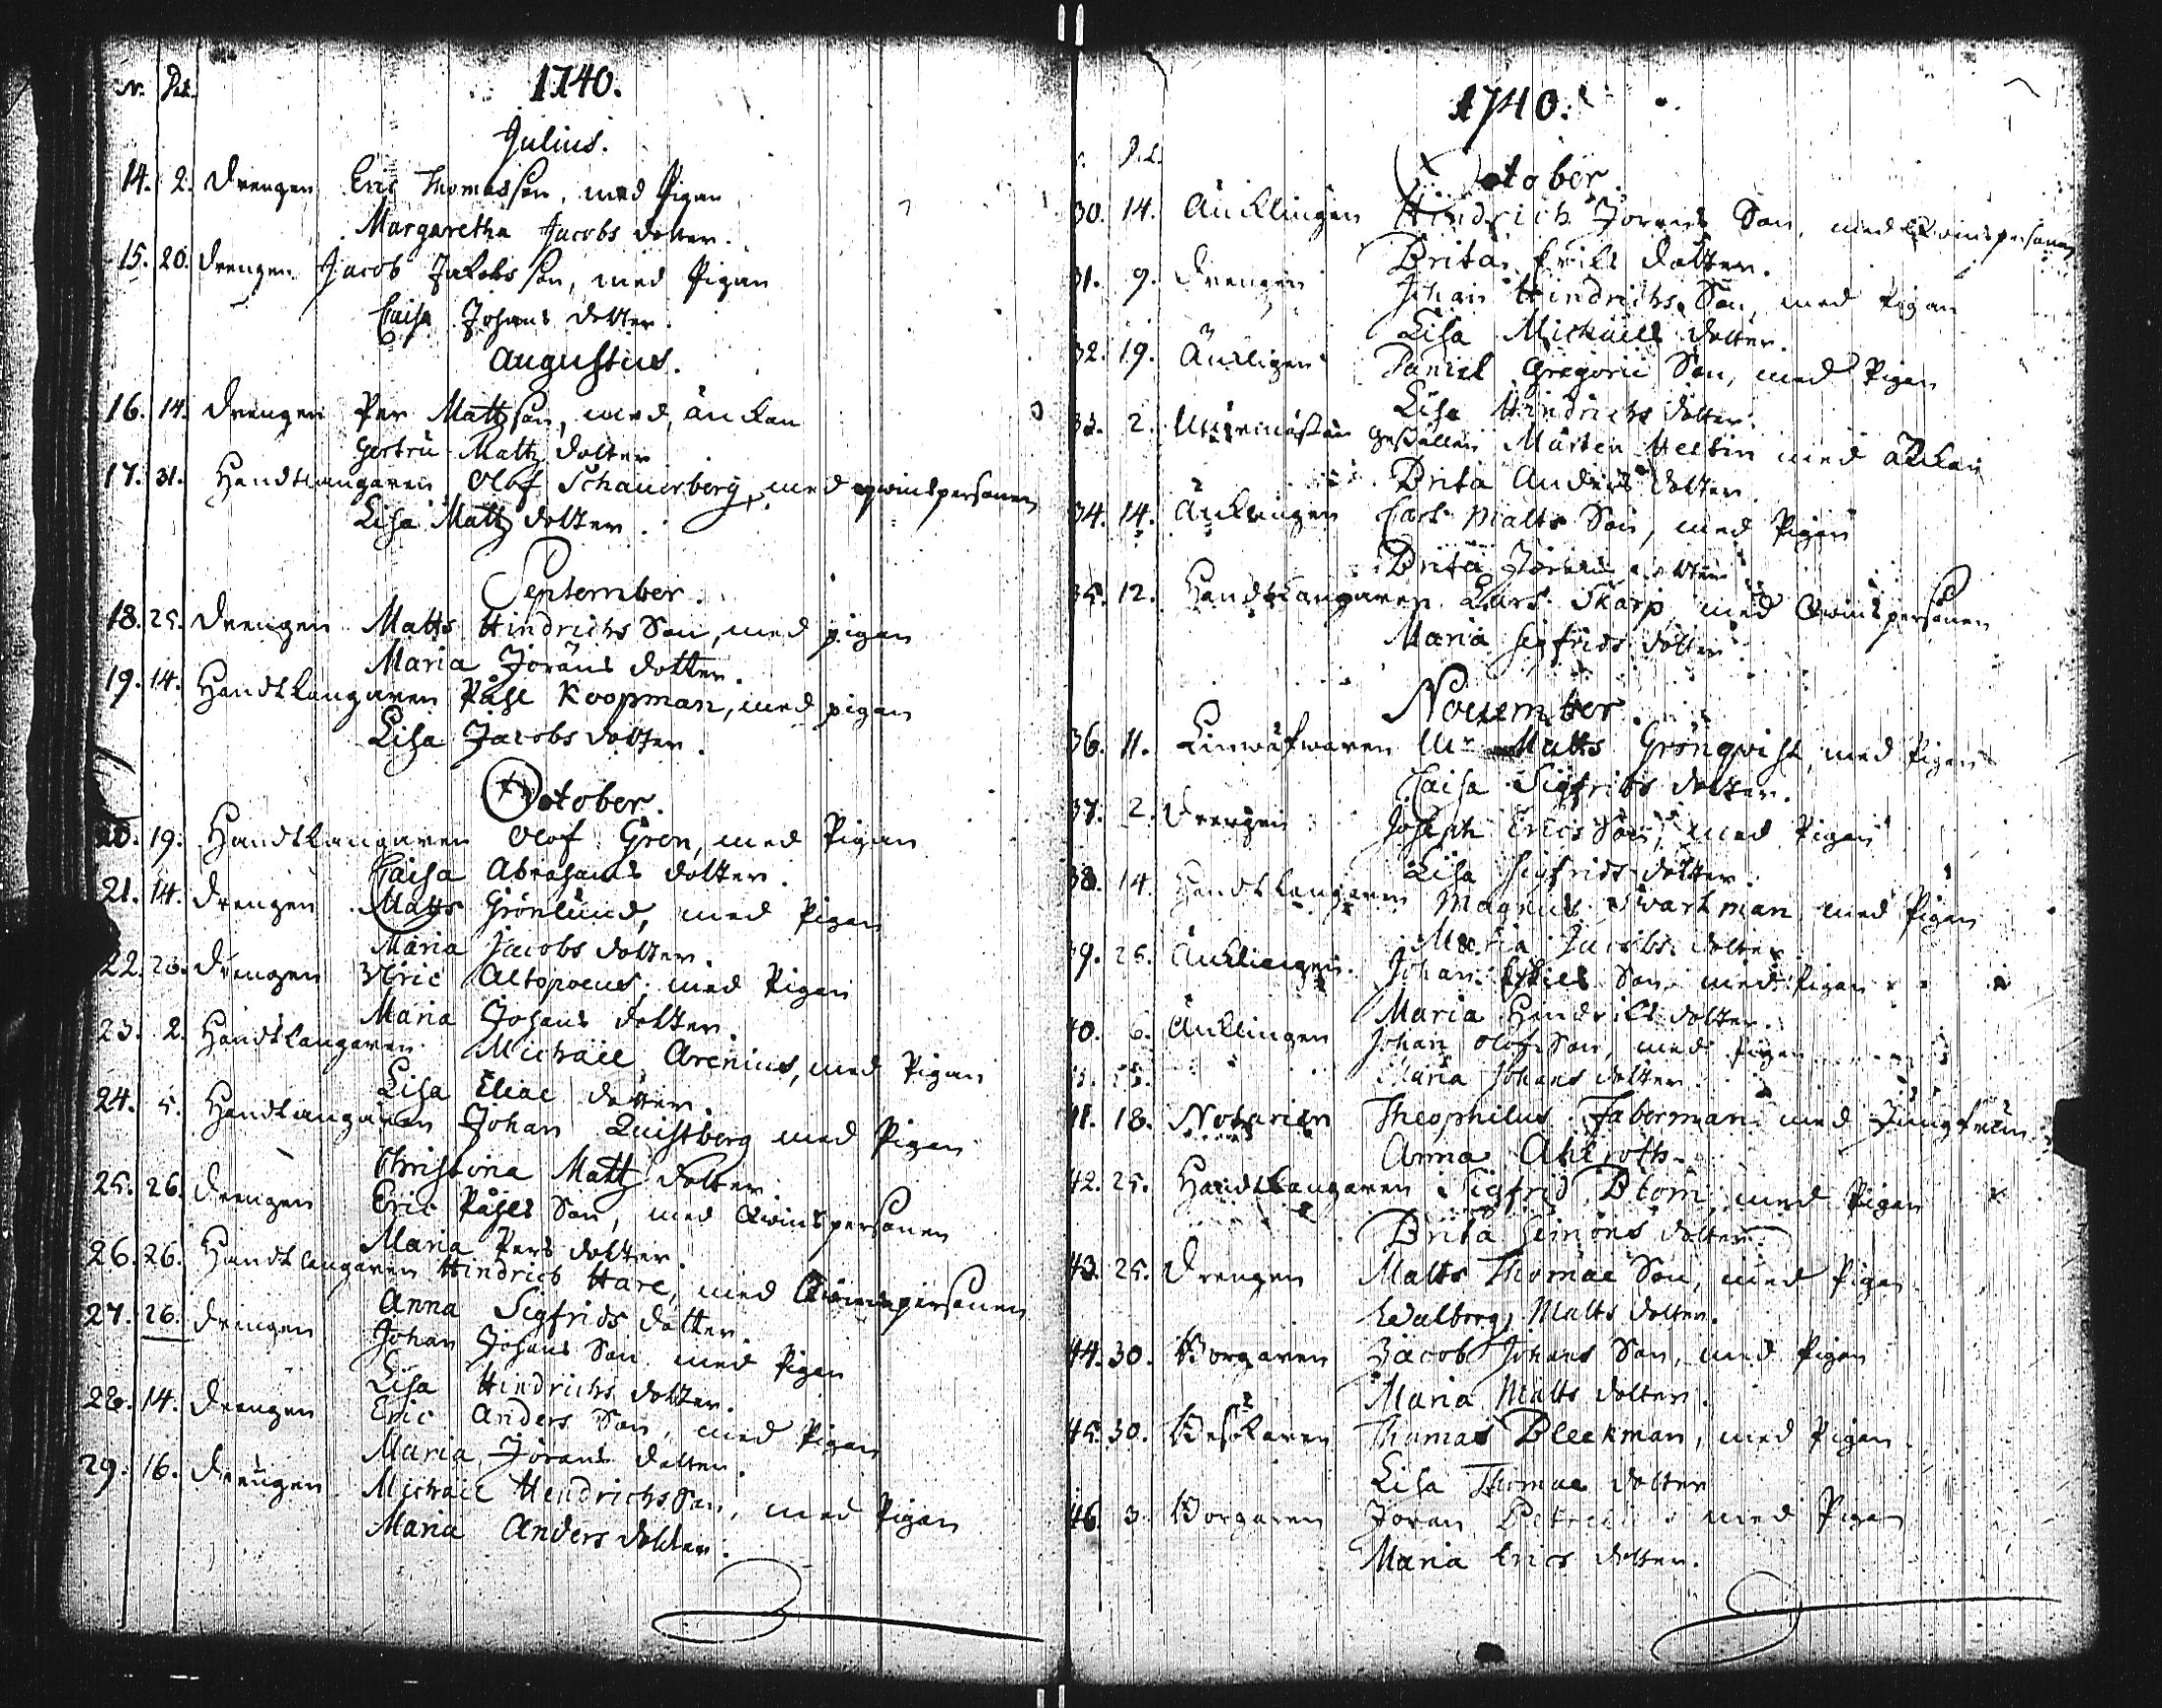 N. Dat.
1740.
Julius.
14. 2. Drengen Eric Thomasson, med Pigan
Margaretha Jacobs dotter.
15. 20. Drengen Jacob Jakobs son, med Pigan
Caisa Johans dotter.
Augustus.
16. 14. Drengen Per Mattzson, med änckan
Gertru Mattz dotter
17. 31. Handtlangaren Olof Schauerberg, med qwinspersonen
Lisa Mattz dotter.
September.
18. 25. Drengen Matts Hindrichs Son, med pigan
Maria Jörans dotter.
19. 14. Handtlangaren Påhl Koopman, med pigan
Lisa Jacobs dotter.
October.
20. 19. Handtlangaren Olof Grön, med Pigan
Caisa Abrahams dotter.
21. 14. Drengen Matts Grönlund, med Pigan
Maria Jacobs dotter.
22. 26. Drengen Eric Altopoeus, med Pigan
Maria Johans dotter.
23. 2. Handtlangaren Michael Arenius, med Pigan
Lisa Eliae dotter.
24. 5. Handtlangaren Johan Quistberg med Pigan
Christina Mattz dotter.
25. 26. Drengen Eric Påhls Son, med Qwinspersonen
Maria Pers dotter.
26. 26. Handtlangaren Hindrich Hare, med Qwinspersonen
Anna Sigfrids dotter.
27. 26. Drengen Johan Johans Son med Pigan
Lisa Hindrichs dotter.
28. 14. Drengen Eric Anders Son, med Pigan
Maria Jörans dotter.
29. 16. Drengen Michael Hendrichs Son, med Pigan
Maria Anders dotter.
1740.
October.
30. 14. Änklingen Hindrich Jörans Son, med Qwinspersonen
Brita Eriks dotter.
31. 9. Drengen Johan Hindrichs Son, med Pigan
Lisa Michaels dotter.
32. 19. Änklingen Daniel Gregorii Son, med Pigan
Lisa Hindrichs dotter.
33. 2. Murmästare Gesällen Mårten med Änkan
Brita Anders dotter.
34. 14. Änklingen Carl Matts Son, med Pigan
Brita Jörans dotter
35. 12. Handtlangaren Lars Skarp med Qwinspersonen
Maria Sigfrids dotter.
November.
36. 11. Linwäfwaren Mr Matts Grönqwist, med Pigan
Caisa Sigfrids dotter.
37. 2. Drengen Joseph Erics Son, med Pigan
Lisa Sigfrids dotter.
38. 14. Handtlangaren Magnus Swartman, med Pigan
Maria Jacobs dotter.
39. 26. Änklingen Johan Son med Pigan
Maria Hendrichs dotter.
40. 6. Änklingen Johan Olofs Son, med Pigan
Maria Johans dotter.
41. 18. Notarien Theophilus Faberman med Jungfrun
Anna Ahlroth.
42. 25. Handtlangaren Sigfrid Blom, med Pigan
Brita Simons dotter.
43. 25. Drengen Matts Thomae Son, med Pigan
Walborg Matts dotter.
44. 30. Borgaren Jacob Johans Son, med Pigan
Maria Matts dotter.
45. 30. Besökaren Thomas Bleekman, med Pigan
Lisa Thomae dotter
46. 3. Borgaren Jöran med Pigan
Maria Erics dotter.